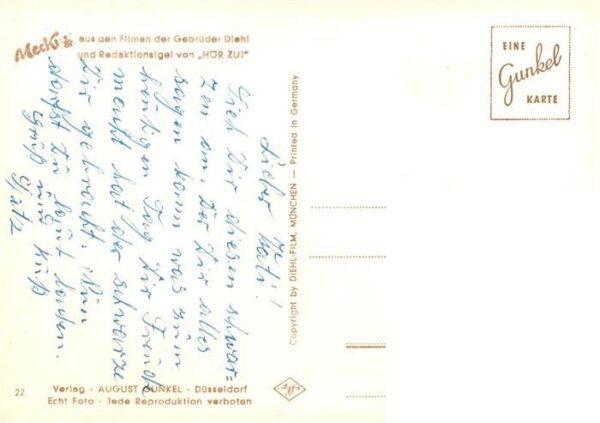 Mecki aus den Filmen der Gebrüder Diehl
und Redaktionsigel von „HÖR ZU!"
EINE
Gunkel
KARTE
Lieber
Sieh Dir diesen schwar=
zen an. Der Dir alles
sagen kann was zum
heutigen Tag Dir Freude
macht hat der schwarze
Dir gebracht. Nun
darfst Du laut
Gruß und Kuß
Copyright by DIEHL-FILM, MÜNCHEN — Printed in Germany
22
Verlag - AUGUST GUNKEL - Düsseldorf
Echt Foto - Jede Reproduktion verboten